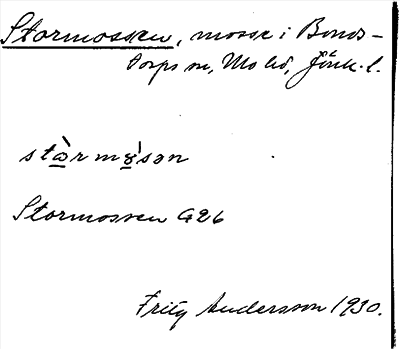 Stormossen, mosse i Bonds-
torps sn, Mo hd, Jönk. l.
stòrmósən
Stormossen G26
Fritz Andersson 1930.